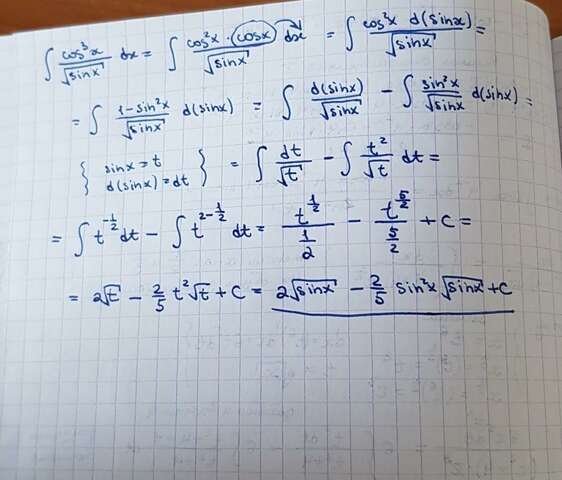 ∫ cos³x/√sinx dx = ∫ cos²x · cosx/√sinx dx = ∫ cos²x d(sinx)/√sinx =
= ∫ 1-sin²x/√sinx d(sinx) = ∫ d(sinx)/√sinx - ∫ sin²x/√sinx d(sinx) =
{ sinx = t
d(sinx) = dt } = ∫ dt/√t - ∫ t²/√t dt =
= ∫ t^(-1/2) dt - ∫ t^(2-1/2) dt = t^(1/2)/(1/2) - t^(5/2)/(5/2) + C =
= 2√t - 2/5 t²√t + C = 2√sinx - 2/5 sin²x √sinx + C